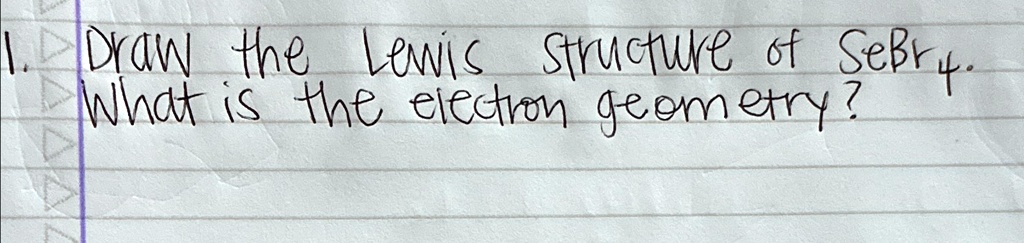 1. Draw the Lewis structure of SeBr₄.
What is the electron geometry?